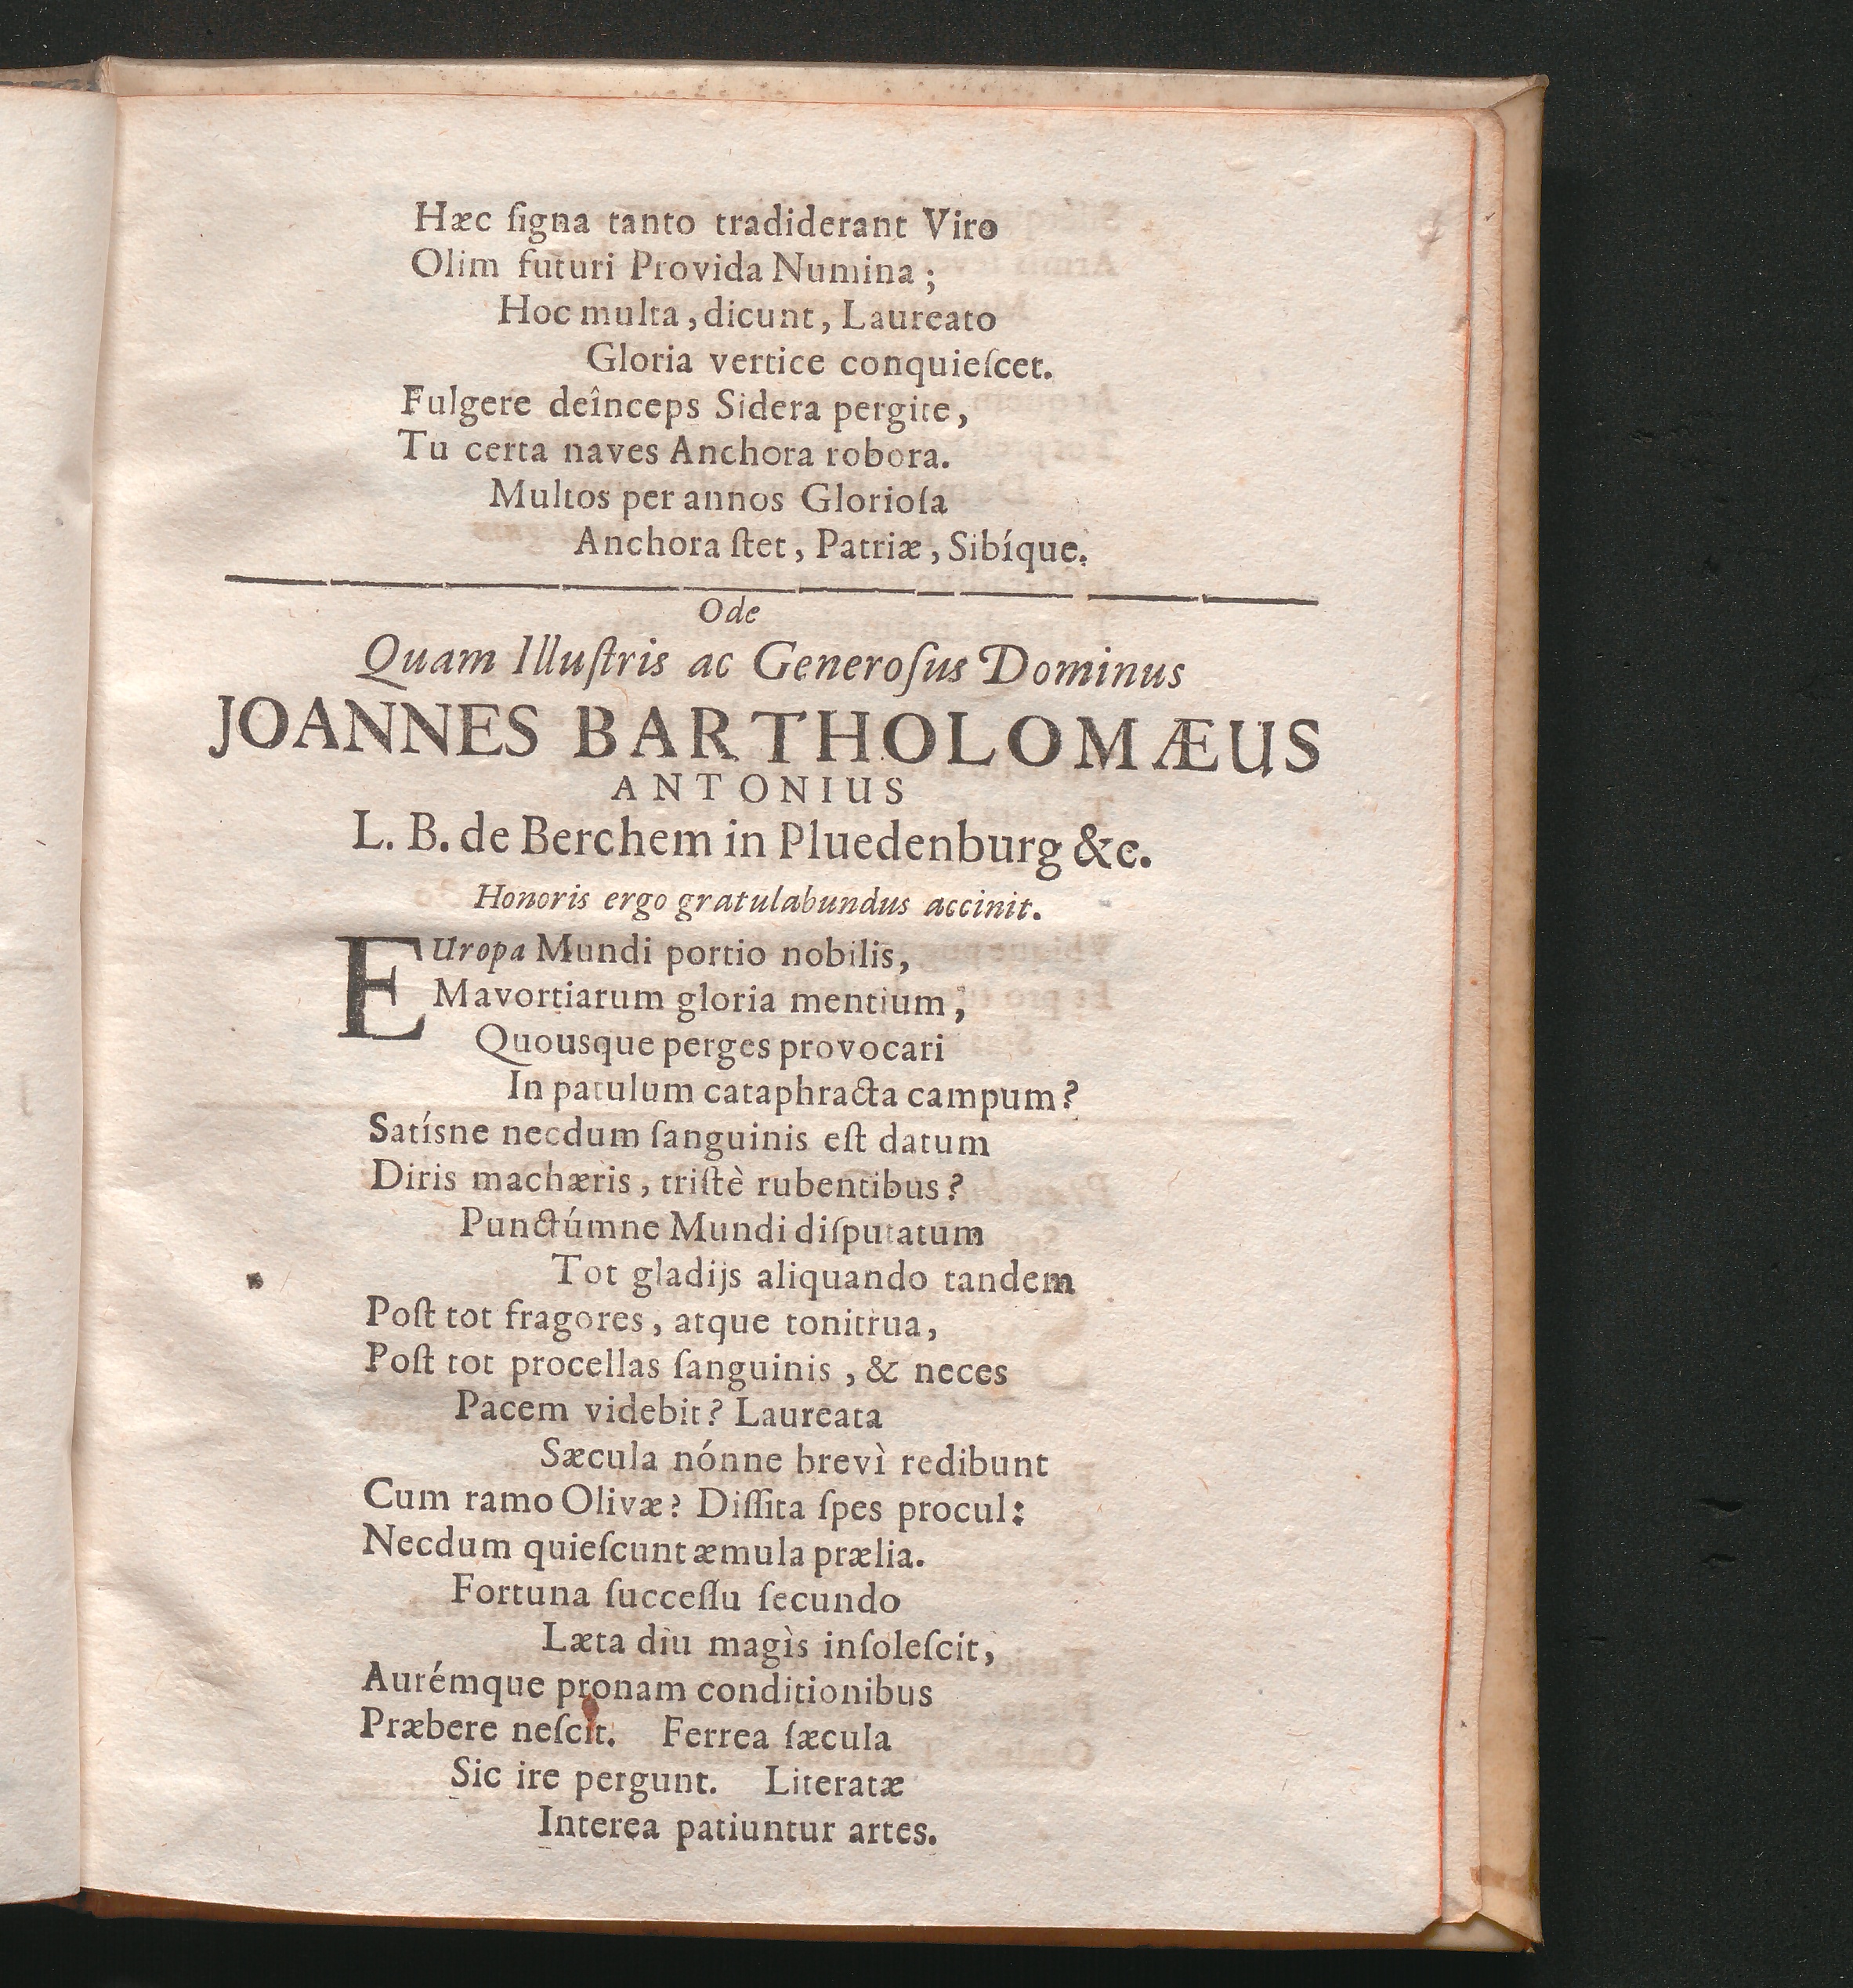 Hæc ſigna tanto tradiderant Viro
Olim futuri Provida Numina;
Hoc multa, dicunt, Laureato
Gloria vertice conquieſcet.
Fulgere deînceps Sidera pergite,
Tu certa naves Anchora robora.
Multos per annos Glorioſa
Anchora ſtet, Patriæ, Sibíque.
Ode
Quam Illuſtris ac Generoſus Dominus
JOANNES BARTHOLOMÆUS
ANTONIUS
L. B. de Berchem in Pluedenburg &c.
Honoris ergo gratulabundus accinit.
EUropa Mundi portio nobilis,
Mavortiarum gloria mentium,
Quousque perges provocari
In patulum cataphracta campum?
Satísne necdum ſanguinis eſt datum
Diris machæris, triſtè rubentibus?
Punctúmne Mundi diſputatum
Tot gladijs aliquando tandem
Poſt tot fragores, atque tonitrua,
Poſt tot procellas ſanguinis, & neces
Pacem videbit? Laureata
Sæcula nónne brevì redibunt
Cum ramo Olivæ? Diſſita ſpes procul:
Necdum quieſcunt æmula prælia.
Fortuna ſucceſſu ſecundo
Læta diu magìs inſoleſcit,
Aurémque pronam conditionibus
Præbere neſcit. Ferrea ſæcula
Sic ire pergunt. Literatæ
Interea patiuntur artes.